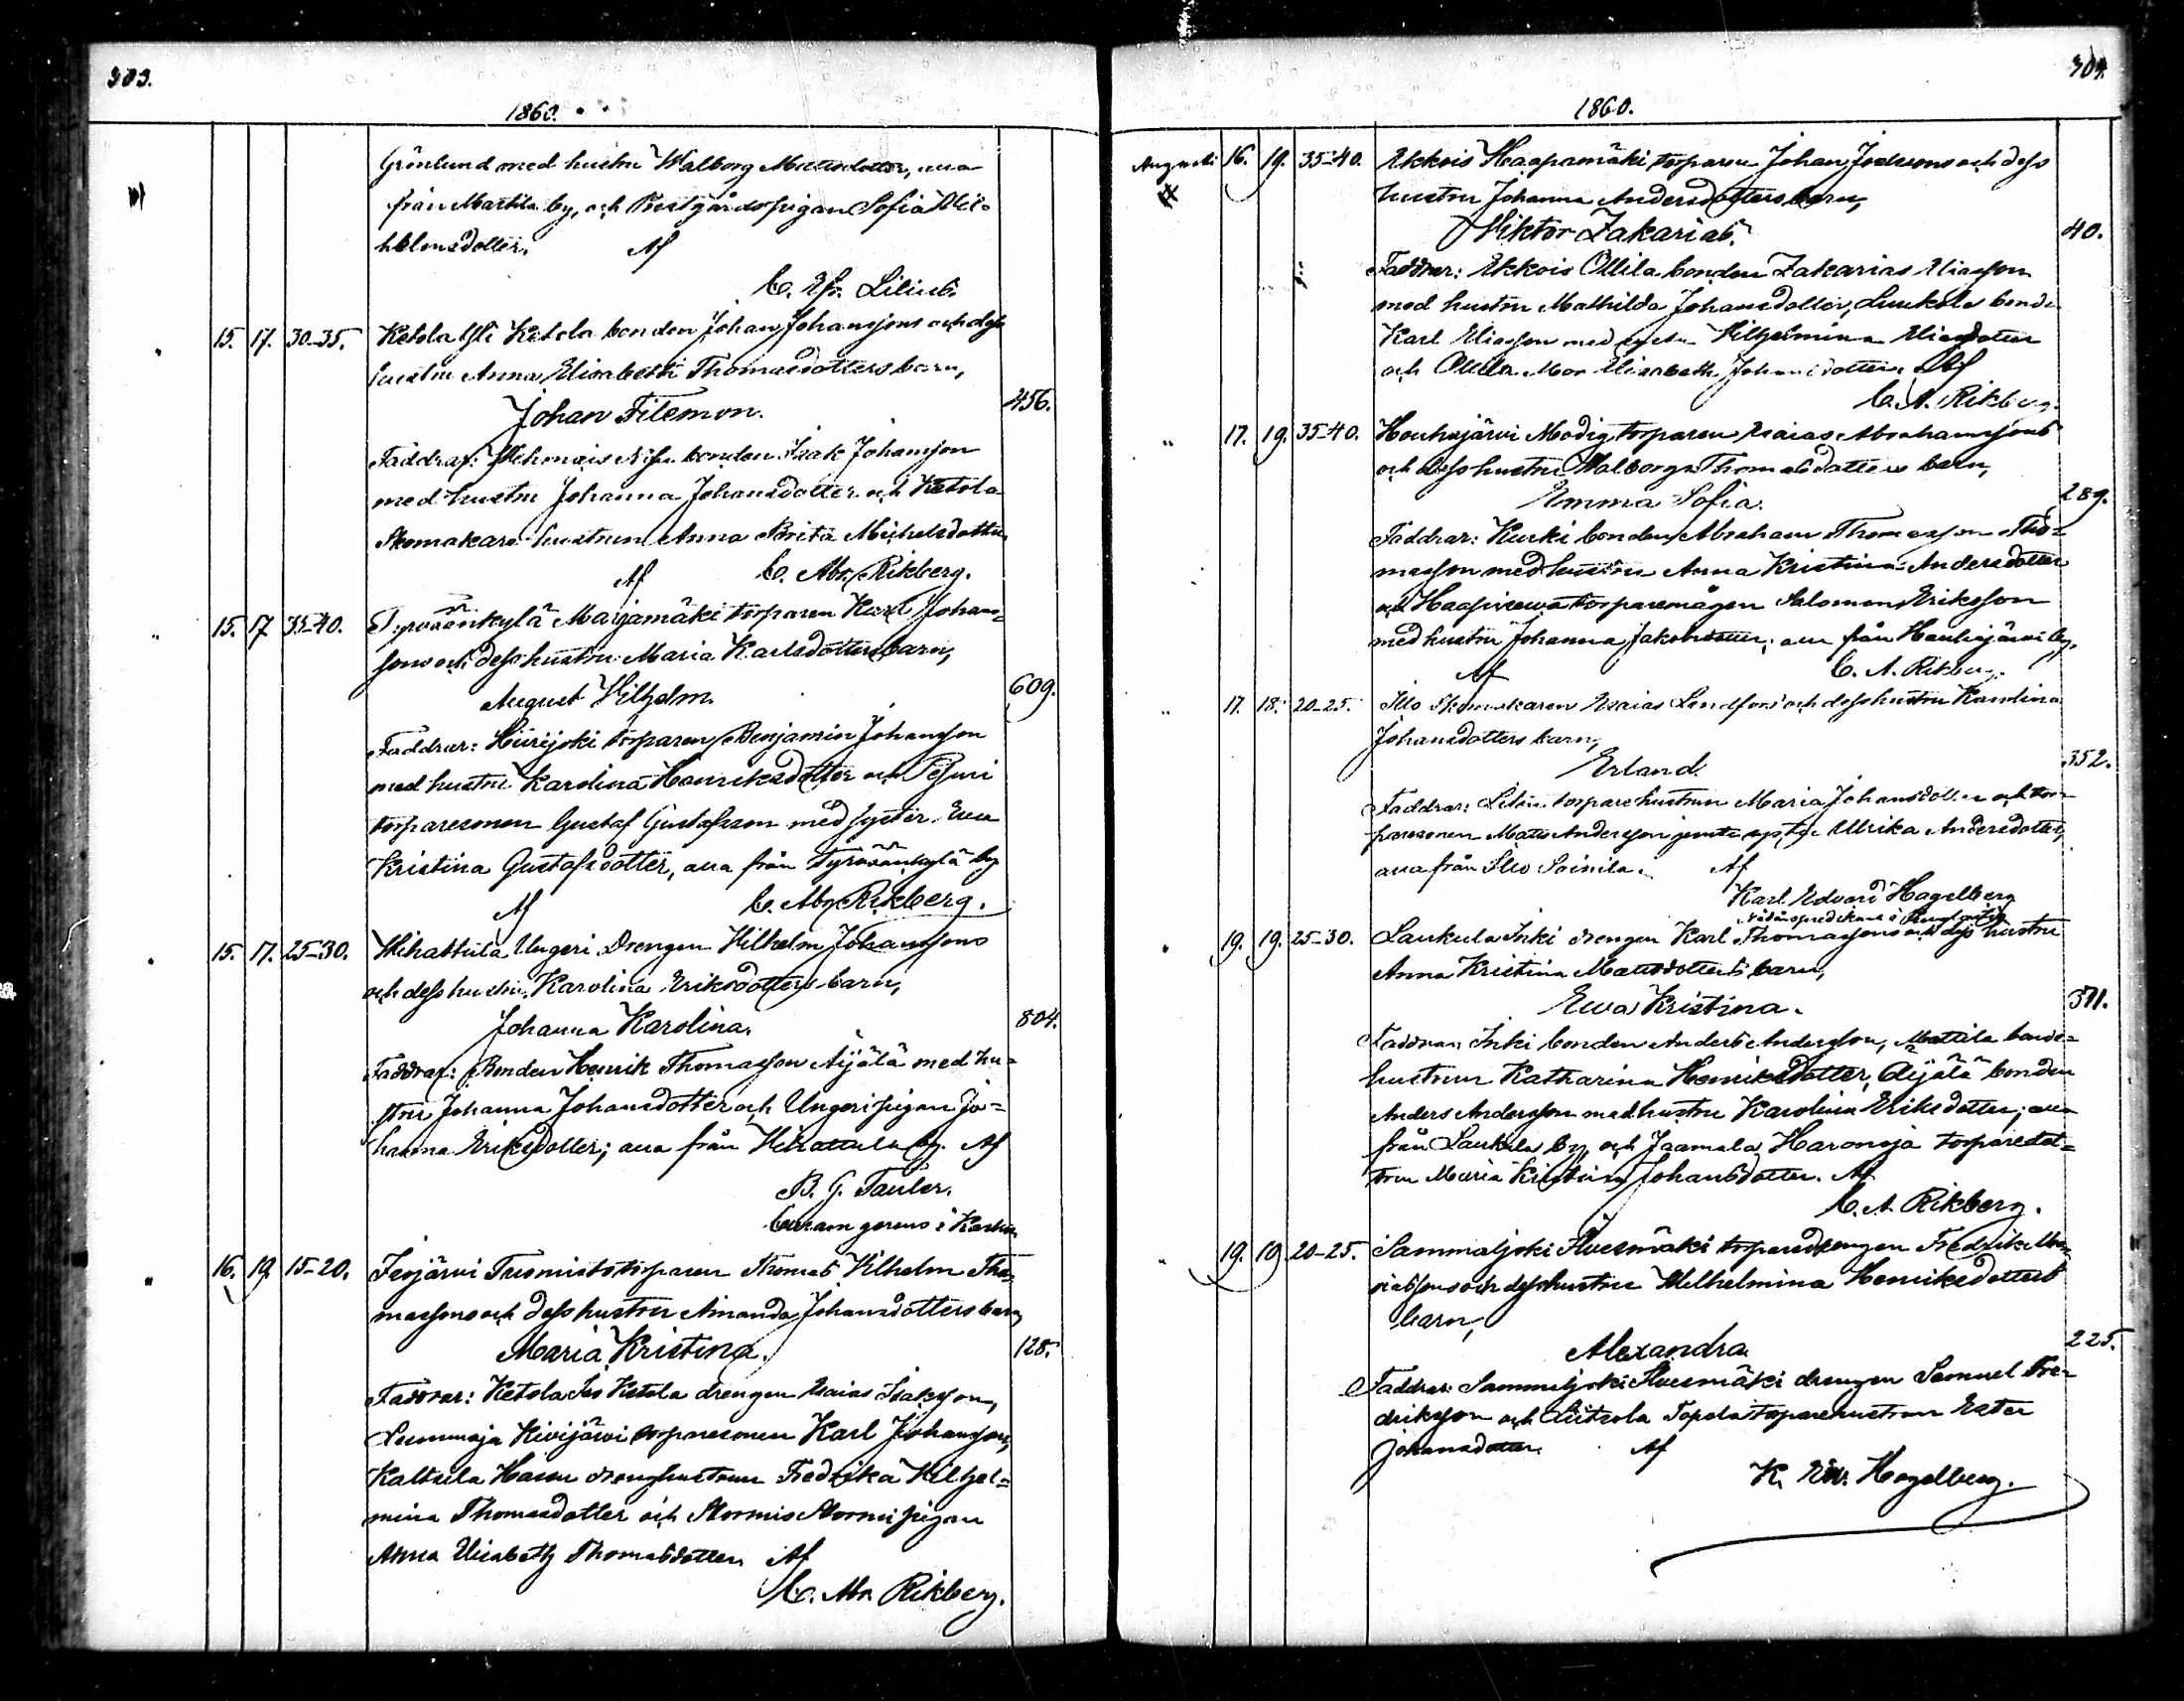 303.
1860.
Grönlund med hustru Walborg Mattsdotter, alla
från Marttila by, och Prestgårdspigan Sofia Wil-
helmsdotter. Af
C. Ef. Lilius.
15. 17. 30-35. Ketola Yli Ketola bonden Johan Johanssons och dess
hustru Anna Elisabeth Thomasdotters barn,
Johan Filemon. 456.
Faddrar: bonden Isak Johansson
med hustru Johanna Johansdotter och Ketola
Skomakare hustrun Anna Brita Michelsdotter
Af C. Abr. Rikberg.
15. 17 35-40. Tyrväänkylä Marjamäki torparen Karl Johans-
sons och dess hustru Maria Karlsdotters barn,
August Wilhelm. 609.
Faddrar: Hiirijoki torparen Benjamin Johansson
med hustru Karolina Henriksdotter och
torparesonen Gustaf Gustafsson med syster Ewa
Kristina Gustafsdotter, alla från Tyrväänkylä by
Af C. Abr. Rikberg.
15. 17. 25-30. Wihattula Ungeri Drengen Wilhelm Johanssons
och dess hustru Karolina Eriksdotters barn,
Johanna Karolina. 804.
Faddrar: Bonden Henrik Thomasson Äijälä med hu-
stru Johanna Johansdotter och Ungeri pigan Jo-
hanna Eriksdotter; alla från Wihattula by. Af
B. G. Tauler.
Curam gerens i
16. 19. 15-20. Isojärvi Tuomisto torparen Thomas Wilhelm Tho-
massons och dess hustru Amanda Johansdotters barn,
Maria Kristina. 128.
Faddrar: Ketola Iso Ketola drengen Esaias Isaksson,
Kivijärvi torparesonen Karl Johansson,
Kaltsila drenghustrun Fredrika Wilhel-
mina Thomasdotter och pigan
Anna Elisabeth Thomasdotter. Af
C. Abr. Rikberg.
304.
1860.
Augusti 16. 19. 35-40. Ekkois Haapamäki torparen Johan Joelssons och dess
hustru Johanna Andersdotters barn,
Wiktor Zakarias. 40.
Faddrar: Ekkois Ollila bonden Zakarias Eliasson
med hustru Mathilda Johansdotter, bonde
Karl Eliasson med syster Wilhelmina Eliasdotter
och Ollila Mor Elisabeth Johansdotter. Af
C. A. Rikberg.
" 17. 19. 35-40. Houhajärvi Modig torparen Esaias Abrahamssons
och dess hustru Walborg Thomasdotters barn,
Emma Sofia. 289.
Faddrar: Kurki bonden Abraham Thomasson Tho-
masson med hustru Anna Kristina Andersdotter
och torparemågen Salomon Eriksson
med hustru Johanna Jakobsdotter; alla från Houhajärvi by.
Af C. A. Rikberg.
" 17. 18. 20-25. Illo Skomakaren Esaias Lindfors och dess hustru Karolina
Johansdotters barn,
Erland. 352.
Faddrar: torparehustrun Maria Johansdotter och tor-
paresonen Matts Andersson jemte syster Ulrika Andersdotter,
alla från Illo Soinila. Af
Karl Edvard Hagelberg
nådårspredikant i
19. 19. 25-30. Laukula Inki drengen Karl Thomassons och dess hustru
Anna Kristina Mattsdotters barn,
Ewa Kristina. 371.
Faddrar: Inki bonden Anders Andersson, Mattila bonde-
hustrun Katharina Henriksdotter, Äijälä bonden
Anders Andersson med hustru Karolina Eriksdotter; alla
från Laukula by, och Jaamala Haronoja torparedot-
tren Maria Kristina Johansdotter. Af
C. A. Rikberg.
" 19. 19 20-25. Sammaljoki torparedrengen Fredrik
och dess hustru Wilhelmina Henriksdotters
barn,
Alexandra 225.
Faddrar: Sammaljoki drengen Samuel Fre-
driksson och Liitsola Topola torparehustrun Ester
Johansdotter. Af
K. Edv. Hagelberg.